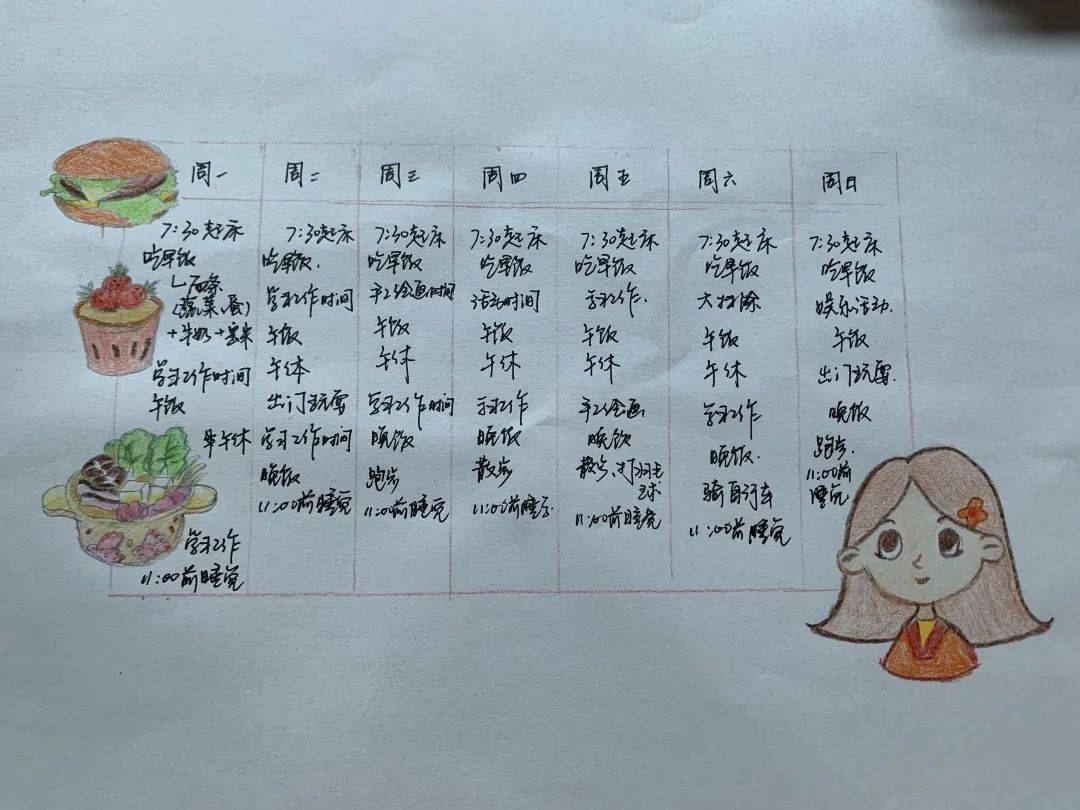 周一
7:30起床
吃早饭
面条
(蔬菜、
+牛奶+
学习工作时间
午饭
午休
学习工作
11:00前睡觉
周二
7:30起床
吃早饭.
学习工作时间
午饭
午休
出门玩耍
学习工作时间
晚饭
11:00前睡觉
周三
7:30起床
吃早饭
手工绘画时间
午饭
午休
学习工作时间
晚饭
跑步
11:00前睡觉
周四
7:30起床
吃早饭
活动时间
午饭
午休
学习工作
晚饭
散步
11:00前睡觉.
周五
7:30起床
吃早饭
学习工作.
午饭
午休
手工绘画
晚饭
散步、打羽毛
球
11:00前睡觉
周六
7:30起床
吃早饭
大扫除
午饭
午休
学习工作
晚饭.
骑自行车
11:00前睡觉
周日
7:30起床
吃早饭
娱乐活动.
午饭
出门玩耍.
晚饭
跑步.
11:00前
睡觉